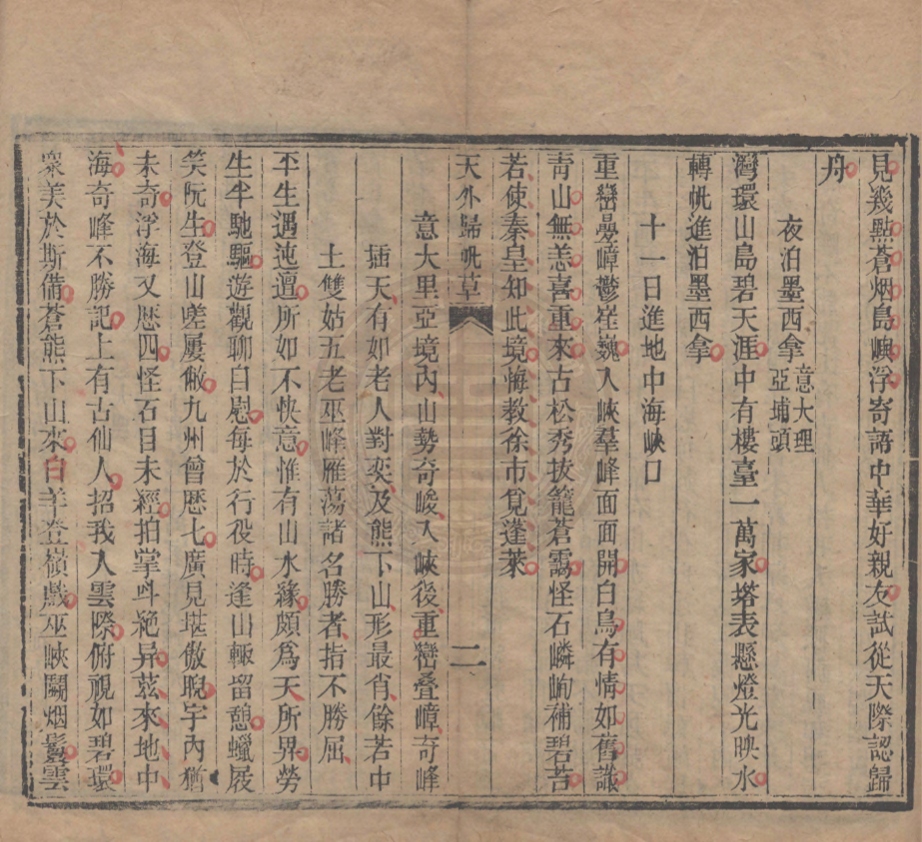 見幾點蒼烟島嶼浮寄語中華好親友試從天際認歸
舟
夜泊墨西拿意大理亞埔頭
灣環山島碧天涯中有樓臺一萬家塔表懸燈光映水
轉帆進泊墨西拿
十一日進地中海峽口
重巒疊嶂鬱崔巍入峽羣峰面面開白鳥有情如舊識
青山無恙喜重來古松秀拔籠蒼靄怪石嶙峋補碧苔
若使秦皇知此境悔教徐市覓蓬萊
天外歸帆草 二
意大里亞境內山勢奇峻入峽後重巒叠嶂奇峰
插天有如老人對奕及熊下山形最肖餘若中
土雙姑五老巫峰雁蕩諸名勝者指不勝屈
平生遇迍邅所如不快意惟有山水緣頗爲天所畀勞
生半馳驅遊觀聊自慰每於行役時逢山輙留憩蠟屐
笑阮生登山嗟屢敝九州曾歷七廣見堪傲睨宇內猶
未奇浮海又歷四怪石目未經拍掌呌絕异茲來地中
海奇峰不勝記上有古仙人招我入雲際俯視如碧環
衆美於斯備蒼熊下山來白羊登嶺戲巫峽鬭烟鬟雲